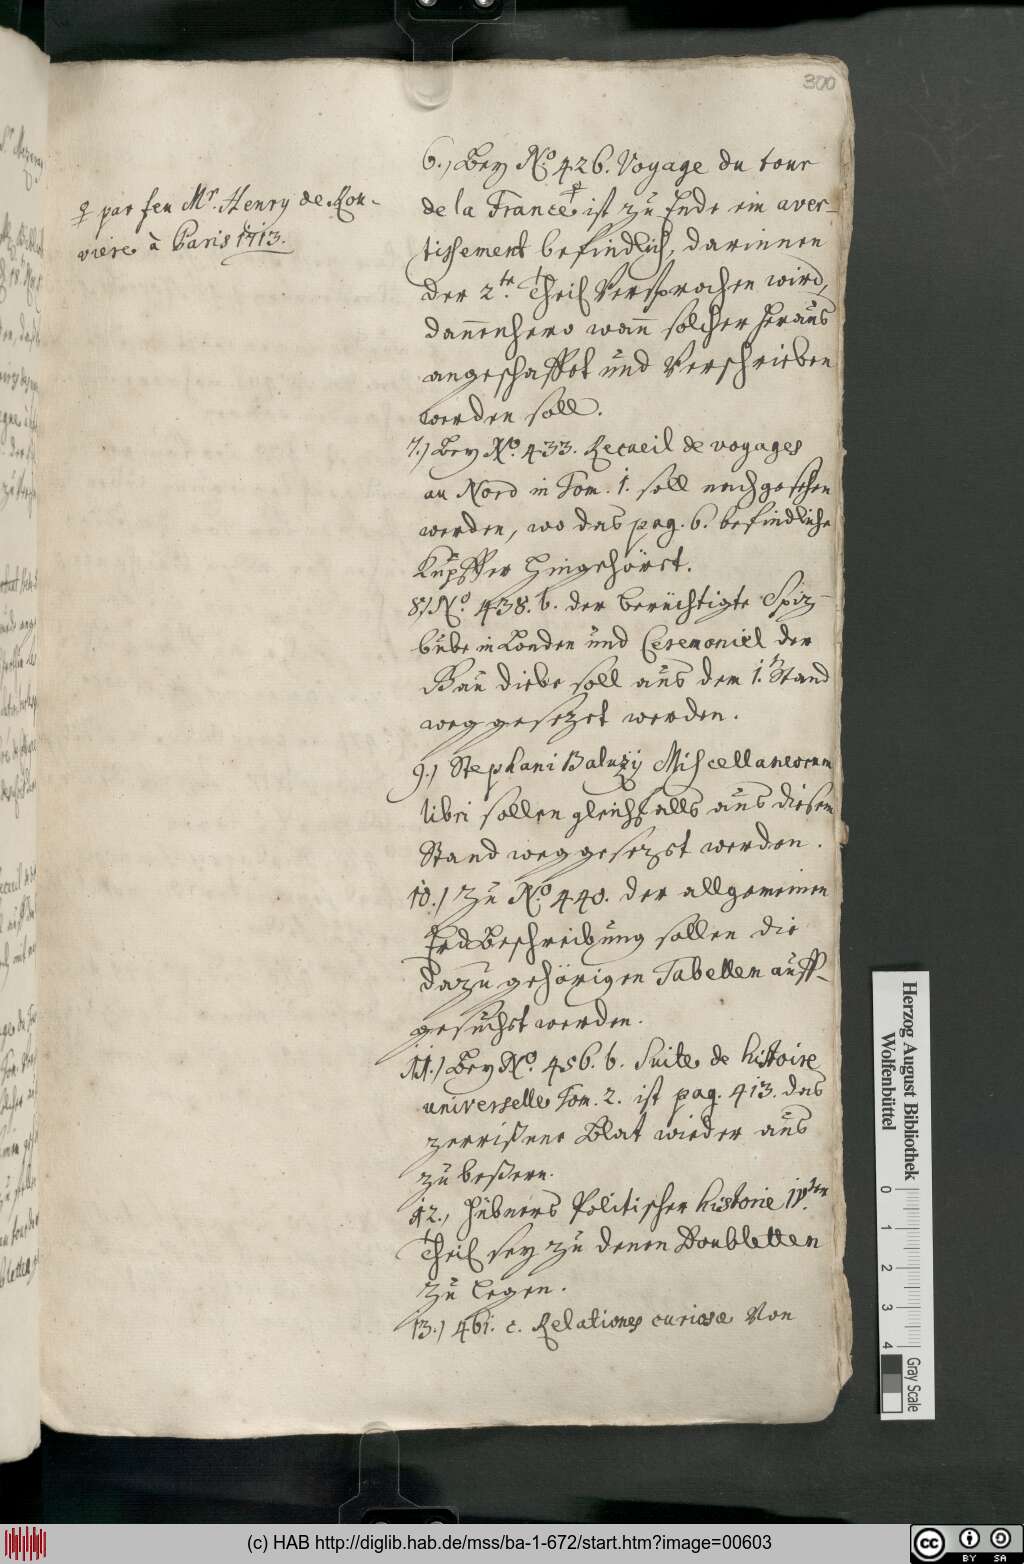 300
♀ par feu Mr. Henry de Rou-
viere à Paris 1713.
6.) Bey No. 426. Voyage du tour
de la France ♀ ist zu Ende ein aver-
tissement befindlich, darinnen
der 2te. Theil Versprochen wird,
dannenhero wann solcher heraus
angeschaffet und Verschrieben
werden soll.
7.) Bey No. 433. Recueil de voyages
au Nord in Tom. 1. soll nachgesehen
werden, wo das pag. 6. befindliche
Kupffer hingehöret.
8.) No. 438. b. der berüchtigte Spiz-
bube in Londen und Ceremoniel der
Gau diebe soll aus dem 1.ten Stand
weggesezet werden.
9.) Stephani Baluzij Miscellaneorum
libri sollen gleichfalls aus diesem
Stand weggesezet werden.
10.) Zu No. 440. der allgemeinen
ErdBeschreibung sollen die
dazu gehörigen Tabellen auff-
gesucht werden.
11.) Bey No. 456. b. Suite de histoire
universelle Tom. 2. ist pag. 413. das
zerrißene Blat wieder aus
zubeßern.
12., Hübners Politischer historie IV.ter
Theil sey zu denen Doubletten
zu legen.
13.) 461. c. Relationes curiosæ Von
Herzog August Bibliothek
Wolfenbüttel
0 1 2 3 4
Gray Scale
(c) HAB http://diglib.hab.de/mss/ba-1-672/start.htm?image=00603
cc BY SA